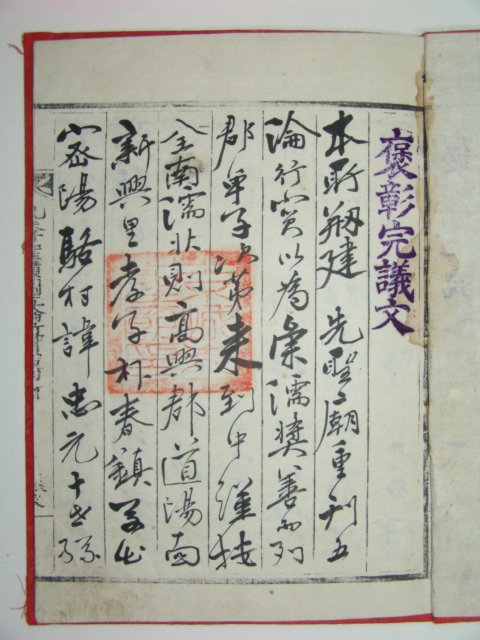 褒彰完議文
本所刱建 先聖廟重刊五
倫行實以為彙濡奬善而列
郡單子次第來到中謹按
全南濡狀則高興郡道陽面
新興里孝子朴春鎮字
密陽駱村諱忠元十世孫